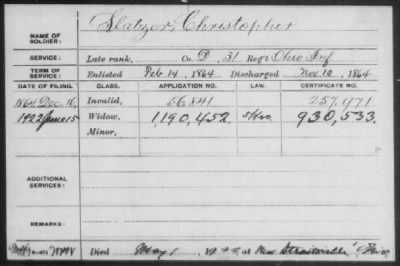 Slatzer, Christopher
NAME OF SOLDIER:
SERVICE: Late rank, Co. D, 31 Reg't Ohio Inf.
TERM OF SERVICE: Enlisted Feb 14, 1864 Discharged Nov. 12, 1864
DATE OF FILING. CLASS. APPLICATION NO. LAW. CERTIFICATE NO.
1864 Dec. 16 Invalid, 56841 257,971
1922 June 15 Widow, 1,190,452 930,533
Minor,
ADDITIONAL SERVICES:
REMARKS:
Died May 1 at New Straitsville, Ohio